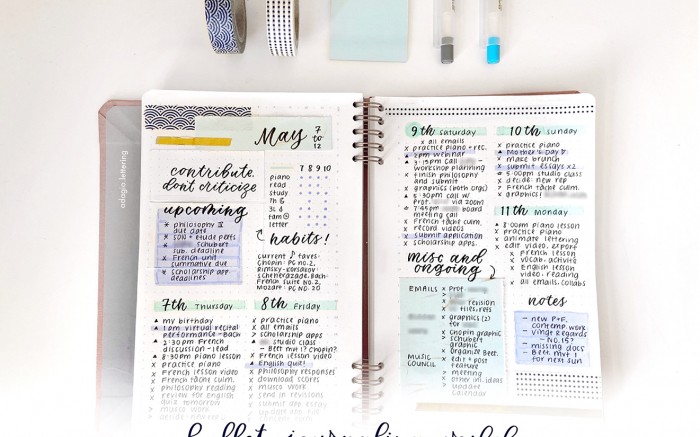 adagio lettering
May 7 to 12
contribute.
don't criticize
7 8 9 10
piano
read
study
7h
3L
fam
letter
habits!
upcoming
* philosophy II
due date
* SON + etude perfs
* Schubert
sub. deadline
* French unit
summative due
* scholarship app
deadlines
current ♪ faves:
Chopin: PC no. 2,
Rimsky-Korsakov:
Scheherazade, Bach:
French Suite no. 2,
Mozart: PC no. 20
7th Thursday
▲ my birthday
▲ 1 pm virtual recital
performance - Bach
▲ 2:30pm French
discussion - lead
▲ 8:30pm piano lesson
x practice piano
x French video
x French tâche culm.
x philosophy reading
x review for English
quiz tomorrow
> music work
8th Friday
x practice piano
x all emails
> scholarship apps
studio class
- Beet mvt 1? Chopin?
x French lesson video
▲ English quiz!
x philosophy responses
x download scores
x music work
x send in revisions
x submit app essay
9th Saturday
x all emails
x practice piano + rec.
▲ 2pm webinar
▲ 3:15pm call
workshop planning
x finish philosophy
and submit
x graphics (both orgs)
▲ 5:30pm call w/
Prof. via zoom
▲ 7:45pm board
meeting call
x French tâche culm.
x record videos
x submit application
x scholarship apps.
misc and
ongoing
EMAILS
x Prof.
x revision
x files, rels
x graphics (2)
for
x Chopin graphic
> schubert
graphic
x Organize Beet.
x edit + post
feature
MUSIC
COUNCIL
> meeting
x other ini. ideas
> Update
Calendar
10th Sunday
x practice piano
▲ Mother's Day
x make brunch
x submit essays x2
▲ 5:00pm studio class
x decide new rep
> French tâche culm.
x graphics!
11th Monday
▲ 8:00pm piano lesson
x practice piano
x animate lettering
x edit video, export
x French lesson
x vocab. activity
x English lesson
video, reading
x all emails, collabs
notes
- new P+F,
contemp work
- Vingt Regards
- No. 15?
- missing docs
- Beet. mvt 1
for next sun